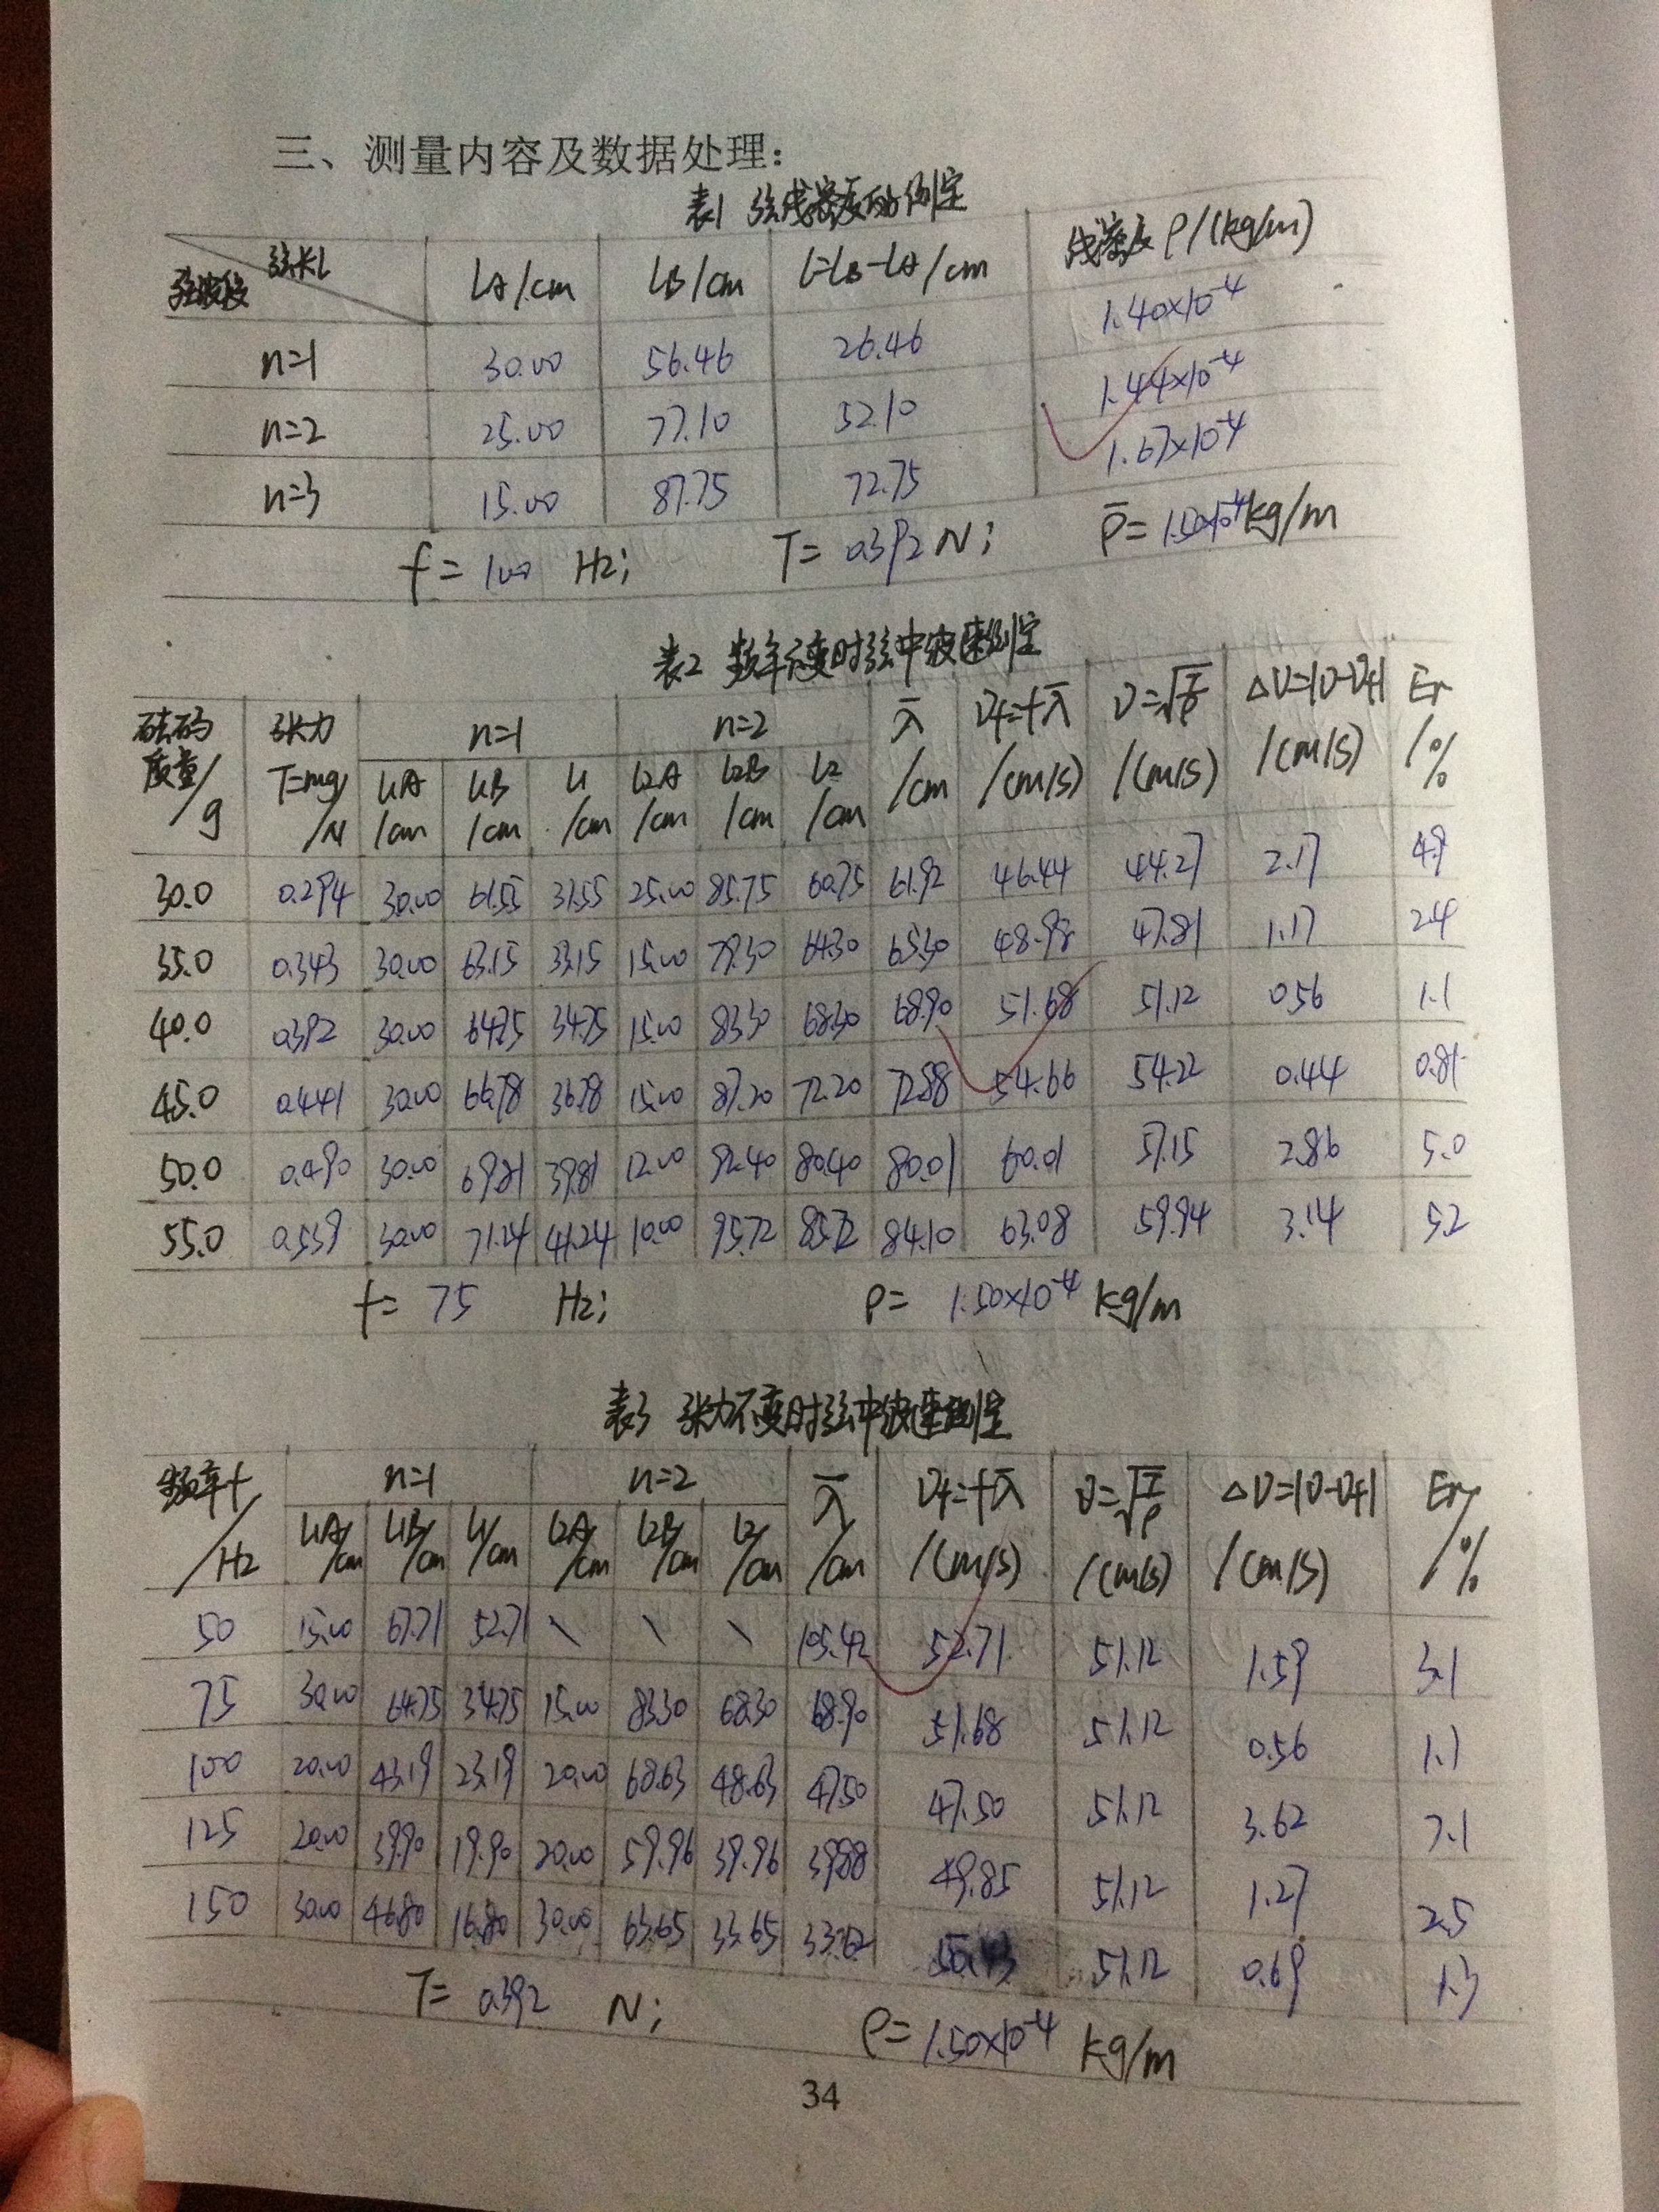 三、测量内容及数据处理：
表1 弦线密度的测定
弦长L
弦波段 LA/cm LB/cm L=LB-LA/cm 线密度 ρ/(kg/m)
n=1 30.00 56.46 26.46 1.40×10⁻⁴
n=2 25.00 77.10 52.10 1.44×10⁻⁴
n=3 15.00 87.75 72.75 1.67×10⁻⁴
f= 100 Hz; T= 0.392 N; ρ̄= 1.50×10⁻⁴ kg/m
表2 频率不变时弦中波速测定
砝码质量/g 张力T=mg/N n=1 n=2 λ̄/cm Vf=fλ̄/(m/s) V=√(T/ρ)/(m/s) ΔV=|V-Vf|/(m/s) Er/%
L1A/cm L1B/cm L1/cm L2A/cm L2B/cm L2/cm
30.0 0.294 30.00 61.55 31.55 25.00 85.75 60.75 61.92 46.44 44.27 2.17 4.9
35.0 0.343 30.00 63.15 33.15 15.00 79.30 64.30 65.30 48.98 47.81 1.17 2.4
40.0 0.392 30.00 64.75 34.75 15.00 83.30 68.30 68.90 51.68 51.12 0.56 1.1
45.0 0.441 30.00 66.78 36.78 15.00 87.20 72.20 72.88 54.66 54.22 0.44 0.81
50.0 0.490 30.00 69.81 39.81 12.00 92.40 80.40 80.01 60.01 57.15 2.86 5.0
55.0 0.539 30.00 71.24 41.24 10.00 95.72 85.72 84.10 63.08 59.94 3.14 5.2
f= 75 Hz; ρ= 1.50×10⁻⁴ kg/m
表3 张力不变时弦中波速测定
频率f/Hz n=1 n=2 λ̄/cm Vf=fλ̄/(m/s) V=√(T/ρ)/(m/s) ΔV=|V-Vf|/(m/s) Er/%
L1A/cm L1B/cm L1/cm L2A/cm L2B/cm L2/cm
50 15.00 67.71 52.71 \ \ \ 105.42 52.71 51.12 1.59 3.1
75 30.00 64.75 34.75 15.00 83.30 68.30 68.90 51.68 51.12 0.56 1.1
100 20.00 43.19 23.19 20.00 68.63 48.63 47.50 47.50 51.12 3.62 7.1
125 20.00 39.90 19.90 20.00 59.96 39.96 39.88 49.85 51.12 1.27 2.5
150 30.00 46.80 16.80 30.00 63.65 33.65 33.62 50.43 51.12 0.69 1.3
T= 0.392 N; ρ= 1.50×10⁻⁴ kg/m
34